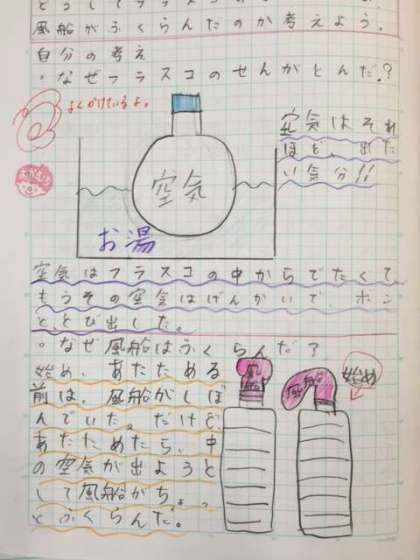 どうしてフラスコ
風船がふくらんだのか考えよう。
自分の考え
・なぜフラスコのせんがとんだ?
よくかけているよ。
空気はそれ
ほど、あた
い気分!!
空気
お湯
空気はフラスコの中からでたくて
もうその空気はげんかいで、ボン
ととび出した。
・なぜ風船はふくらんだ?
始め、あたためる
前は、風船がしぼ
んでいた。だけど
あたためたら、中
の空気が出ようと
して風船がちょっ
とふくらんだ。
風
風船
始め